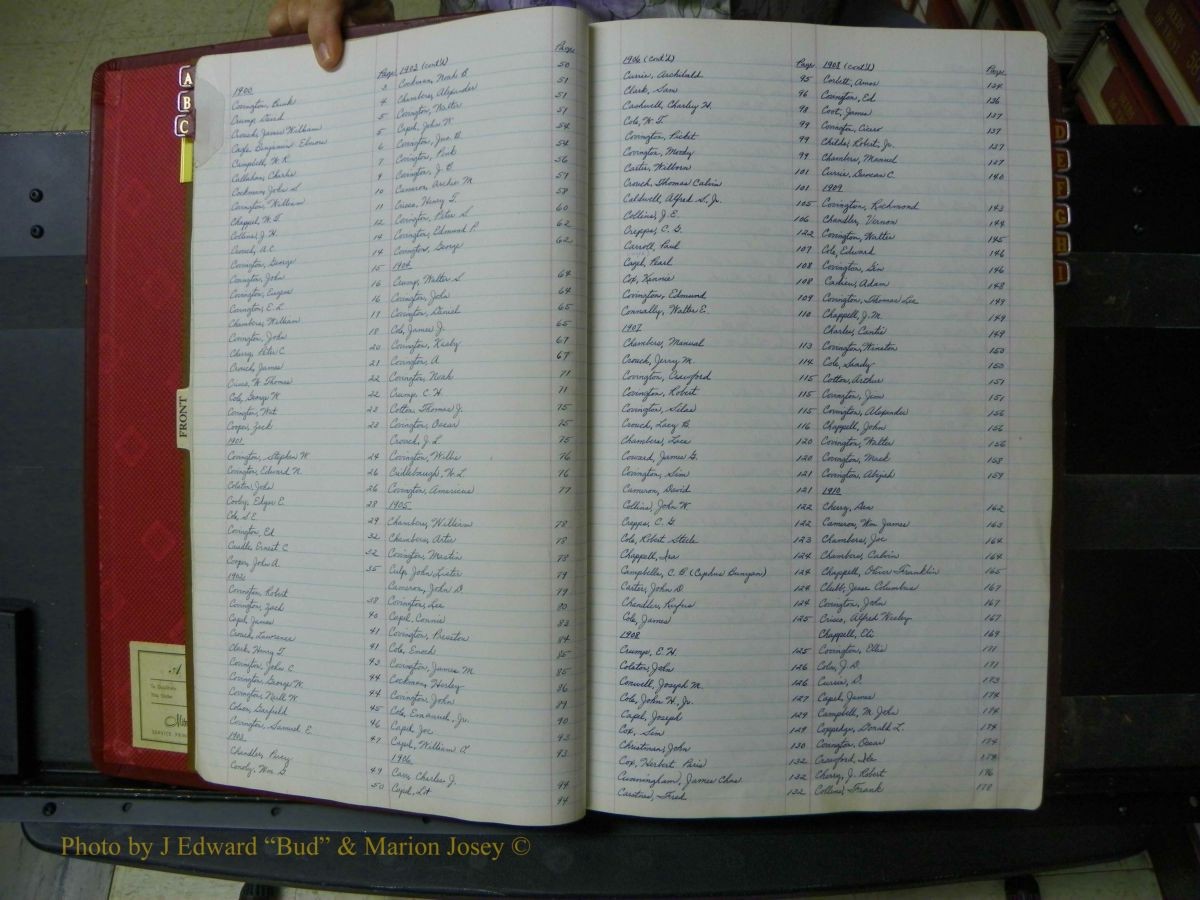 A
B
C
FRONT
1900 Page
Covington, Bunk 3
Crump, David 4
Crouch, James William 5
Cagle, Benjamin Elmore 5
Campbell, W. K. 6
Callahan, Charlie 7
Cockman, John S. 9
Covington, William 10
Chappel, W. T. 11
Collins, J. H. 12
Crouch, A. C. 14
Covington, George 14
Covington, John 15
Covington, Eugene 16
Covington, E. L. 16
Chambers, William 17
Covington, John 18
Cherry, Peter C. 20
Crouch, James 21
Crisco, W. Thomas 22
Cole, George W. 22
Covington, Wat 22
Cooper, Zack 23
1901
Covington, Stephen W. 24
Covington, Edward N. 26
Colston, John 26
Cooley, Edgar E. 28
Cole, S. E. 29
Covington, Ed 32
Caudle, Ernest C. 32
Cooper, John A. 35
1902
Covington, Robert 38
Covington, Zach 40
Capel, James 41
Crouch, Lawrence 41
Clark, Henry T. 43
Covington, John C. 44
Covington, George W. 44
Covington, Neill W. 45
Colson, Garfield 46
Covington, Samuel E. 47
1903
Chandler, Percy 49
Conoly, Wm. G. 50
1903 (cont'd) Page
Cockman, Noah B. 50
Chambers, Alexander 51
Covington, Walter 51
Capel, John W. 51
Covington, Jno. H. 54
Covington, Pink 54
Covington, J. B. 56
Cameron, Archie M. 57
Crisco, Henry T. 58
Covington, Peter S. 60
Covington, Edmund P. 62
Covington, George 62
1904
Crump, Walter S. 64
Covington, John 64
Covington, Daniel 65
Cole, James J. 65
Covington, 67
Covington, A. 67
Covington, Noah 71
Crump, C. H. 71
Cotton, Thomas J. 75
Covington, Oscar 75
Crouch, J. L. 75
Covington, Willis 76
W. L. 76
Covington, Americus 77
1905
Chambers, William 78
Chambers, Artie 78
Covington, Martin 78
Culp, John Luster 79
Cameron, John D. 79
Covington, Lee 80
Capel, Connie 83
Covington, Preuston 84
Cole, Enoch 85
Covington, James M. 85
Cockman, Hurley 86
Covington, John 89
Cole, Emanuel, Jr. 90
Capel, Joe 93
Capel, William A. 93
1906
Carr, Charles J. 94
Capel, Lit 94
1906 (cont'd) Page
Currie, Archibald 95
Clark, Sam 96
Caudwell, Charley H. 98
Cole, W. T. 99
Covington, Picket 99
Covington, Moody 99
Carter, Wilborn 101
Crouch, Thomas Calvin 101
Caldwell, Alfred S., Jr. 105
Collins, J. E. 106
Crepps, C. G. 122
Carroll, Paul 107
Cagel, Pearl 108
Cox, Kinnie 108
Covington, Edmund 109
Connolly, Walter E. 110
1907
Chambers, Manual 113
Crouch, Jerry M. 114
Covington, Crawford 115
Covington, Robert 115
Covington, Silas 115
Crouch, Lacy B. 116
Chambers, Luce 120
Coward, James G. 120
Covington, Sim 121
Cameron, David 121
Collins, John W. 122
Crepps, C. G. 122
Cole, Robert Steele 123
Chappell, Ira 124
Campbelle, C. B. (Cyphus Bunyan) 124
Carter, John D. 124
Chandler, Rufus 124
Cole, James 125
1908
Crump, E. H. 125
Colston, John 126
Conwell, Joseph M. 126
Cole, John H., Jr. 127
Capel, Joseph 129
Cox, Sim 129
Christman, John 130
Cox, Herbert Paris 132
Cunningham, James Chas 132
Carstres, Fred 132
1908 (cont'd) Page
Corbett, Amos 134
Covington, Ed 136
Coot, James 137
Covington, Cicero 137
Childs, Robert, Jr. 137
Chambers, Manuel 137
Currie, Duncan C. 140
1909
Covington, Richmond 143
Chandler, Vernon 144
Covington, Walter 145
Cole, Edward 146
Covington, Gin 146
Adam 148
Covington, Thomas Lee 149
Chappell, J. M. 149
Charles, Cantie 149
Covington, Winston 150
Cole, Sandy 150
Cotton, Arthur 151
Covington, Jim 151
Covington, Alexander 156
Chappell, John 156
Covington, Walter 156
Covington, Mack 158
Covington, Abijah 159
1910
Cherry, Dan 162
Cameron, Wm. James 163
Chambers, Joe 164
Chambers, Calvin 164
Chappell, Oliver Franklin 165
Clubb, Jesse Columbus 167
Covington, John 167
Crisco, Alfred Wesley 167
Chappell, Eli 169
Covington, Ellis 171
Coln, J. D. 171
Currie, D. 173
Capel, James 174
Campbell, M. John 174
Coppedge, Donald L. 174
Covington, Oscar 174
Crawford, Ida 174
Cherry, J. Robert 176
Collins, Frank 178
D
E
F
G
H
I
A
To Duplicate
SERVICE PRIN
Photo by J Edward “Bud” & Marion Josey ©